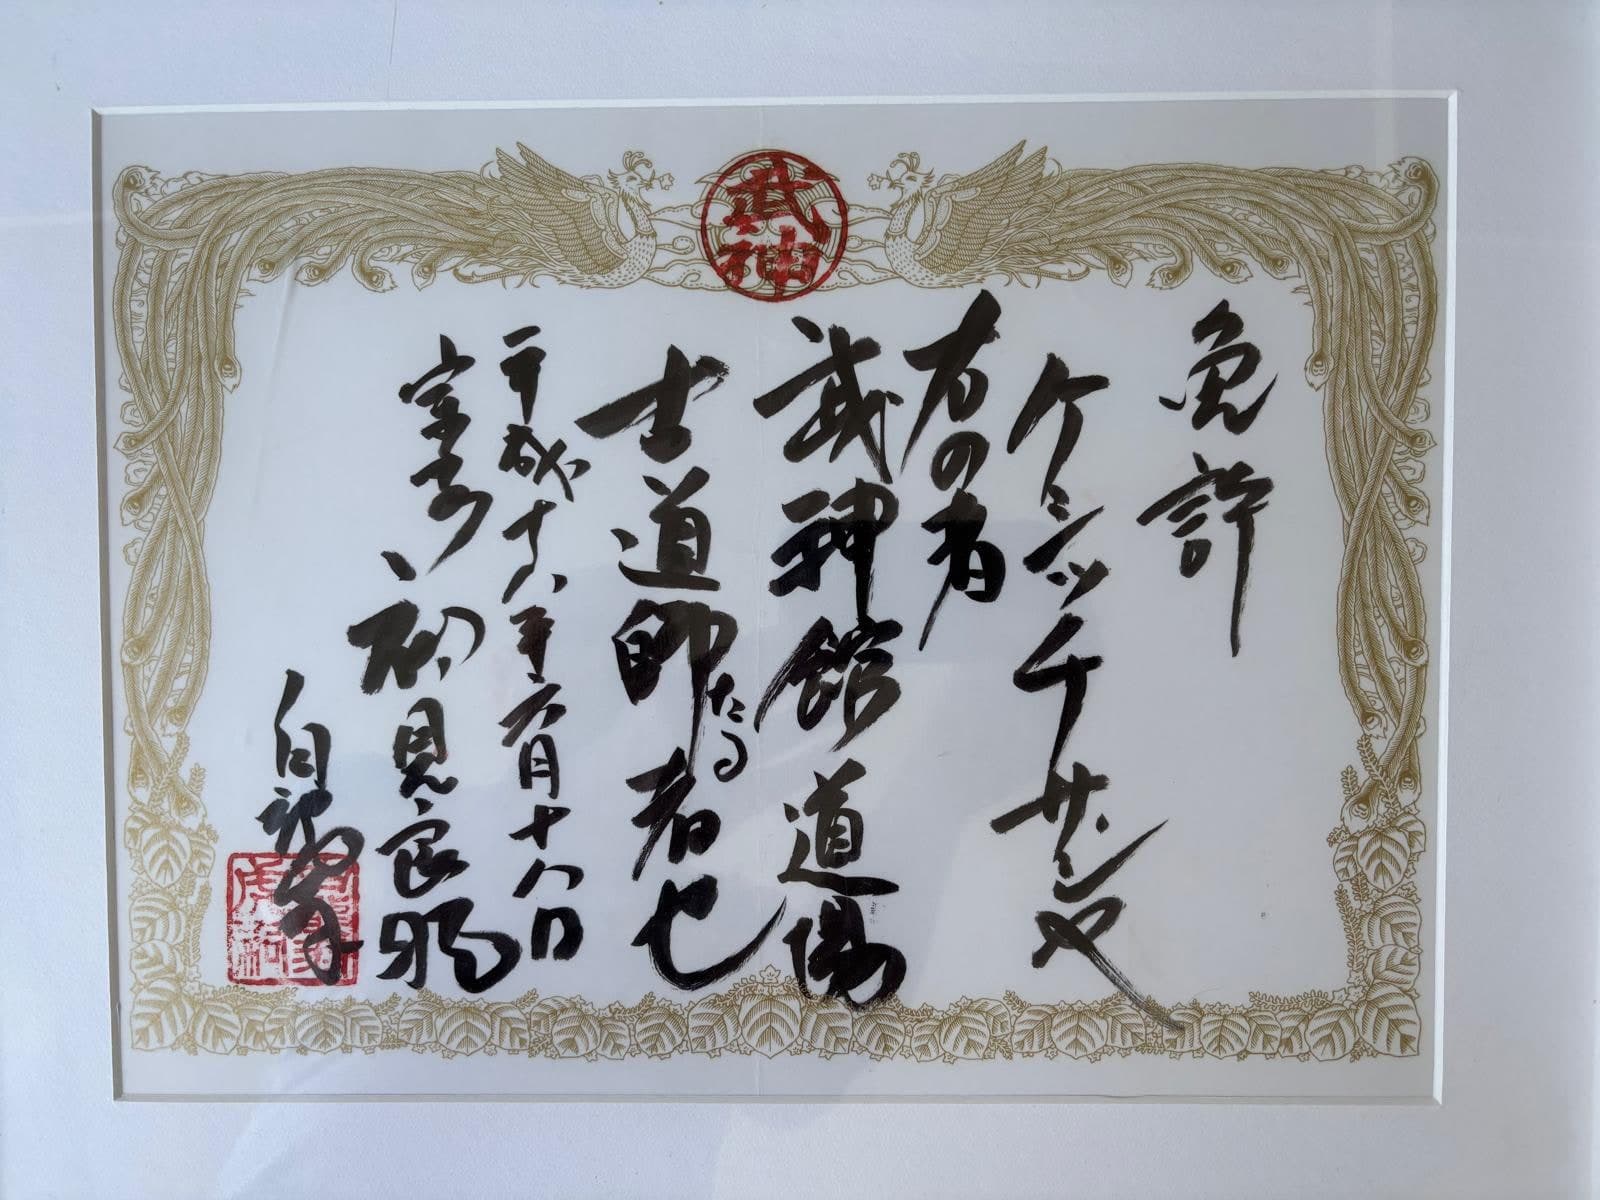 武神
免許
ケミシッチサンヤ
右の者
武神館道場
士道師たる者也
平成十八年六月十八日
宗家 初見良昭
白龍